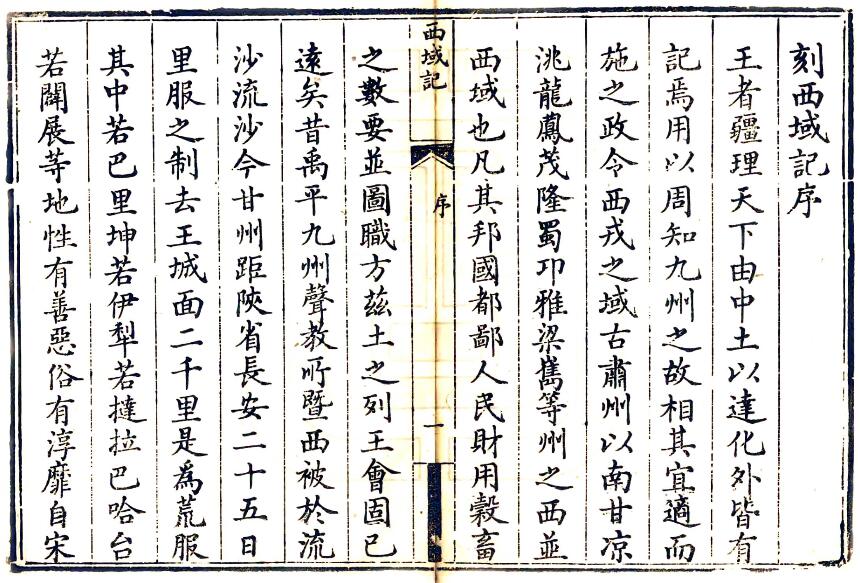 刻西域記序
王者疆理天下由中土以達化外皆有
記焉用以周知九州之故相其宜適而
施之政令西戎之域古肅州以南甘凉
洮龍鳳茂隆蜀邛雅梁雟等州之西並
西域也凡其邦國都鄙人民財用穀畜
西域記
序
一
之數要並圖職方茲土之列王會固已
遠矣昔禹平九州聲教所暨西被於流
沙流沙今甘州距陝省長安二十五日
里服之制去王城面二千里是為荒服
其中若巴里坤若伊犁若撻拉巴哈台
若闢展等地性有善惡俗有淳靡自宋